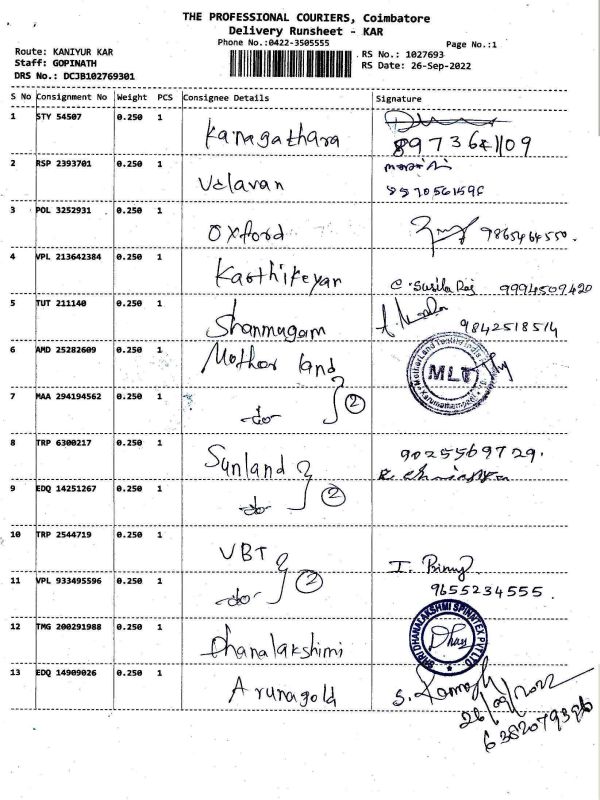 THE PROFESSIONAL COURIERS, Coimbatore
Delivery Runsheet - KAR
Phone No.:0422-3505555
Page No.:1
Route: KANIYUR KAR
Staff: GOPINATH
DRS No.: DCJB102769301
RS No.: 1027693
RS Date: 26-Sep-2022
S No Consignment No Weight PCS Consignee Details Signature
1 STY 54507 0.250 1 Kanagathara
2 RSP 2393701 0.250 1 Velavan
3 POL 3252931 0.250 1 Oxford 9865464550.
4 VPL 213642384 0.250 1 Karthikeyan C. Susila Raj 9994509420
5 TUT 211140 0.250 1 Shanmugam 9842518514
6 AMD 25282609 0.250 1 Mother land MLT
7 MAA 294194562 0.250 1 -do- 2
8 TRP 6300217 0.250 1 Sunland 9025569729.
9 EDQ 14251267 0.250 1 -do- 2
10 TRP 2544719 0.250 1 VBT I. Binny
11 VPL 933495596 0.250 1 -do- 2 9655234555.
12 TMG 200291988 0.250 1 Dhanalakshimi SHRI DHANALAKSHMI SPINNTEX PVT LTD
13 EDQ 14909026 0.250 1 Arunagold
26/09/2022